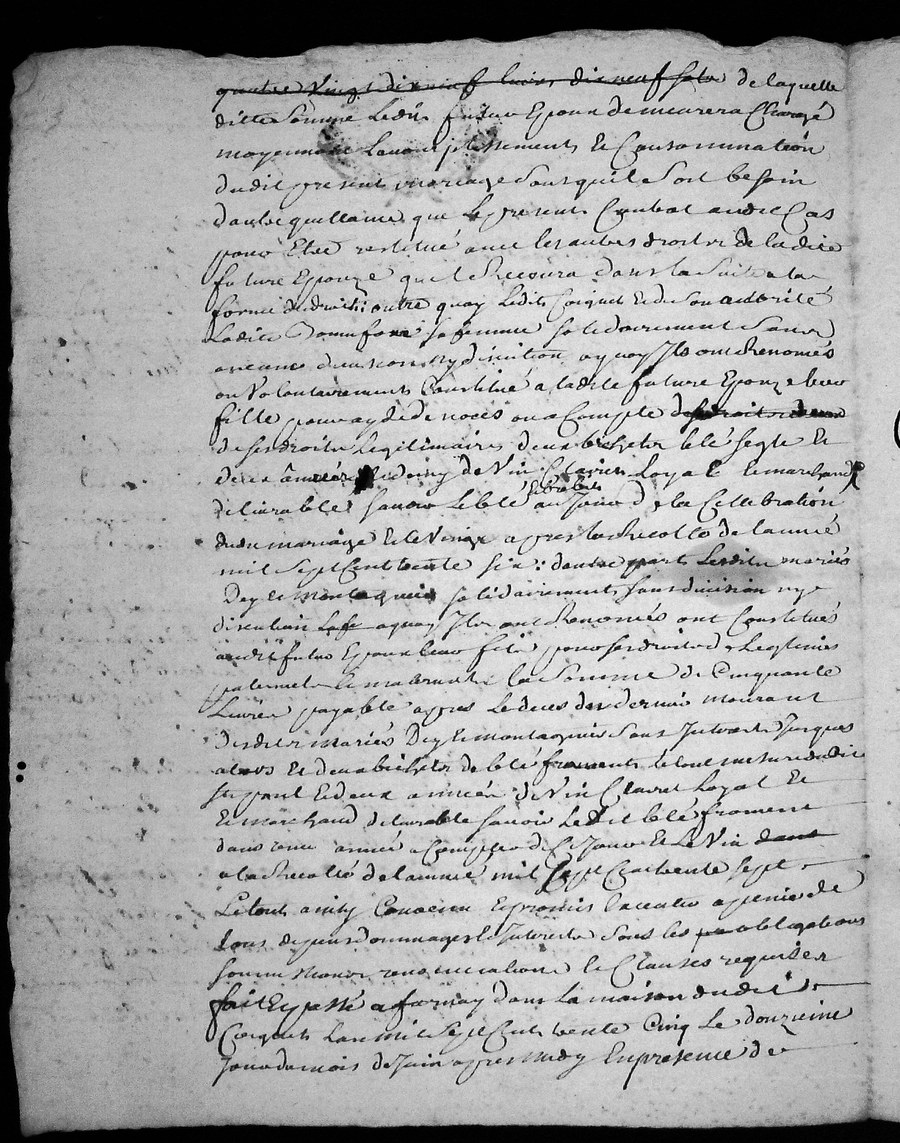 quatre vingt dix neuf livres dix neuf sols de laquelle
ditte Somme Ledit futur Epoux demeurera Chargé
moyennant La Consommation
dudit present mariage Sans quil Soit besoin
dautre quittance que Le present Contrat audit Cas
pour Etre restitué avec les autres droits de ladite
future Epouze quil Recevra dans la Suitte a la
forme du droit outre quoy Ledit Coignet Et de Son autorité
Ladite sa femme solidairement Sans
aucune division ny discution a quoy Ils ont Renoncés
ont Volontairement Constitué a ladite future Epouze leur
fille pour ayde de noces ou a Compte
de Ses droits Legitimaires deux bichets blé segle Et
deux annees de Vin Clairet Loyal Et marchand
delivrables Savoir Le blé au Jour de la Cellebration
dudit mariage Et le Vin apres la Recolte de lannee
mil Sept Cent trente six : dautre part Lesdits mariés
Dey Et Montagnier solidairement Sans division ny
discution a quoy Ils ont Renoncés ont Constitués
audit futur Epoux leur fils pour ses droits Legitimes
paternels Et maternels la Somme de Cinquante
Livres payable apres Le deces du dernier mourant
desdits mariés Dey Et Montagnier Sans Interests Jusques
alors Et deux bichets de blé froment Le tout mesure dudit
Et deux annees de Vin Clairet Loyal Et
Et marchand delivrable Savoir Ledit blé froment
dans une année a Compter de Ce Jour Et Le Vin dans
a la Recolte de lannee mil Sept Cent trente sept
Le tout ainsy Convenu Et promis a peine de
tous depens dommages Et Interests Sous les obligations
renonciations Et Clauses requises
fait Et passé a farnay dans La maison dudit
Coignet Lan mil Sept Cent trente Cinq Le douzieme
Jour du mois de Juin apres midy En presence de